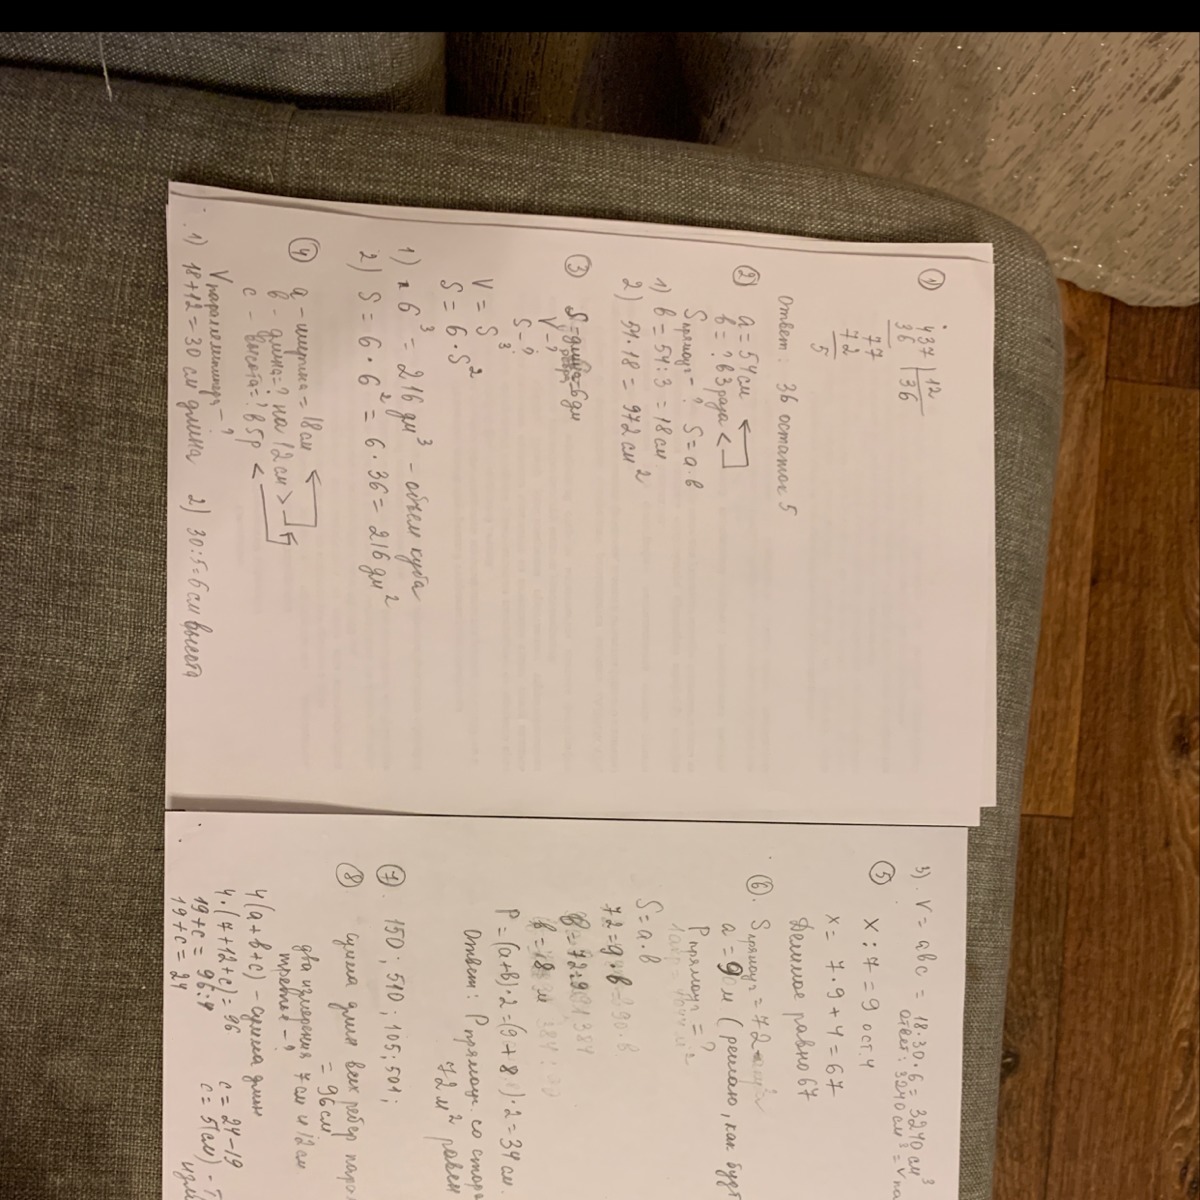 ①
437 | 12
36 | 36
77
72
5
Ответ: 36 остаток 5
② a = 54 см
b = ? в 3 раза <
Sпрямоуг = ? S = a · b
1) b = 54 : 3 = 18 см
2) 54 · 18 = 972 см²
③ S = длина ребра = 6 дм
V - ?
S - ?
V = S³
S = 6 · S²
1) 6³ = 216 дм³ - объем куба
2) S = 6 · 6² = 6 · 36 = 216 дм²
④ a - ширина = 18 см
b - длина = ? на 12 см >
c - высота = ? в 5 р <
Vпараллелепипеда - ?
1) 18 + 12 = 30 см длина 2) 30 : 5 = 6 см высота
3). V = abc = 18 · 30 · 6 = 3240 см³
Ответ: 3240 см³ = V па
⑤ x : 7 = 9 ост. 4
x = 7 · 9 + 4 = 67
Делимое равно 67
⑥. Sпрямоуг = 72
a = 9 м (решаю, как буд
Pпрямоуг = ?
S = a · b
72 = 9 · b
b = 72 : 9
b = 8 м
P = (a + b) · 2 = (9 + 8) · 2 = 34 см.
Ответ: P прямоуг. со сторо
72 м² равен
⑦. 150; 510; 105; 501;
⑧ сумма длин всех ребер пара
= 96 см
два измерения 7 см и 12 см
третье - ?
4(a + b + c) - сумма длин
4 · (7 + 12 + c) = 96
19 + c = 96 : 4
19 + c = 24
c = 24 - 19
c = 5 (см) -
изм